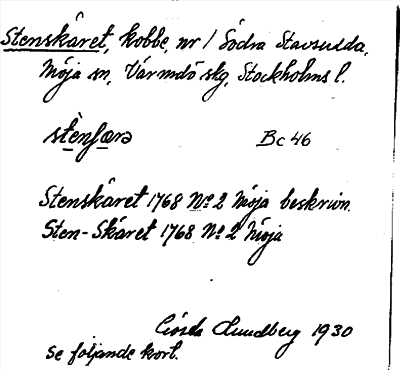 Stenskäret, kobbe, nr 1 Södra Stavsudda,
Möja sn, Värmdö skg, Stockholms l.
Bc 46
Stenskäret 1768 No 2 Möja beskrivn.
Sten-Skäret 1768 No 2 Möja
Gösta Lundberg 1930
Se följande kort.